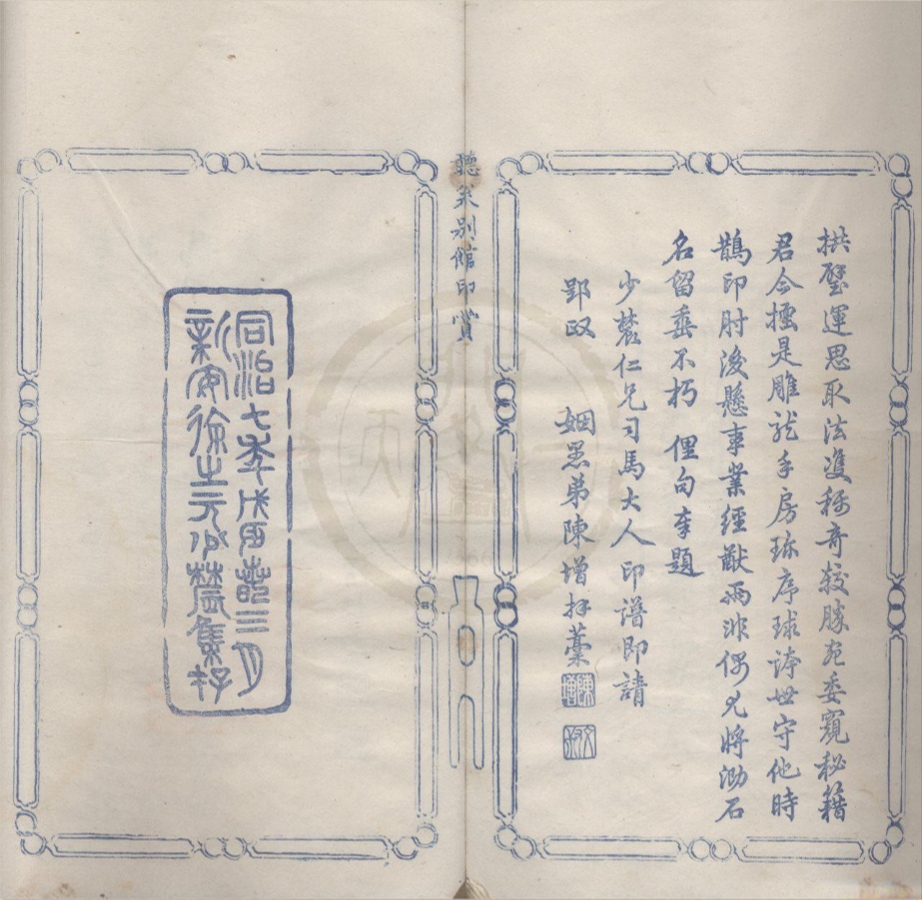 拱璧運思取法復稱奇較勝宛委窺秘籍
君今擅是雕龍手房琭序球詩世守他時
鵲印肘後懸事業經猷兩非偶先將泐石
名留垂不朽 俚句奉題
少麓仁兄司馬大人印譜即請
郢政 姻愚弟陳增拜藁
聽泉別館印賞
同治七年戊辰春三月
新安徐士元少麓集存